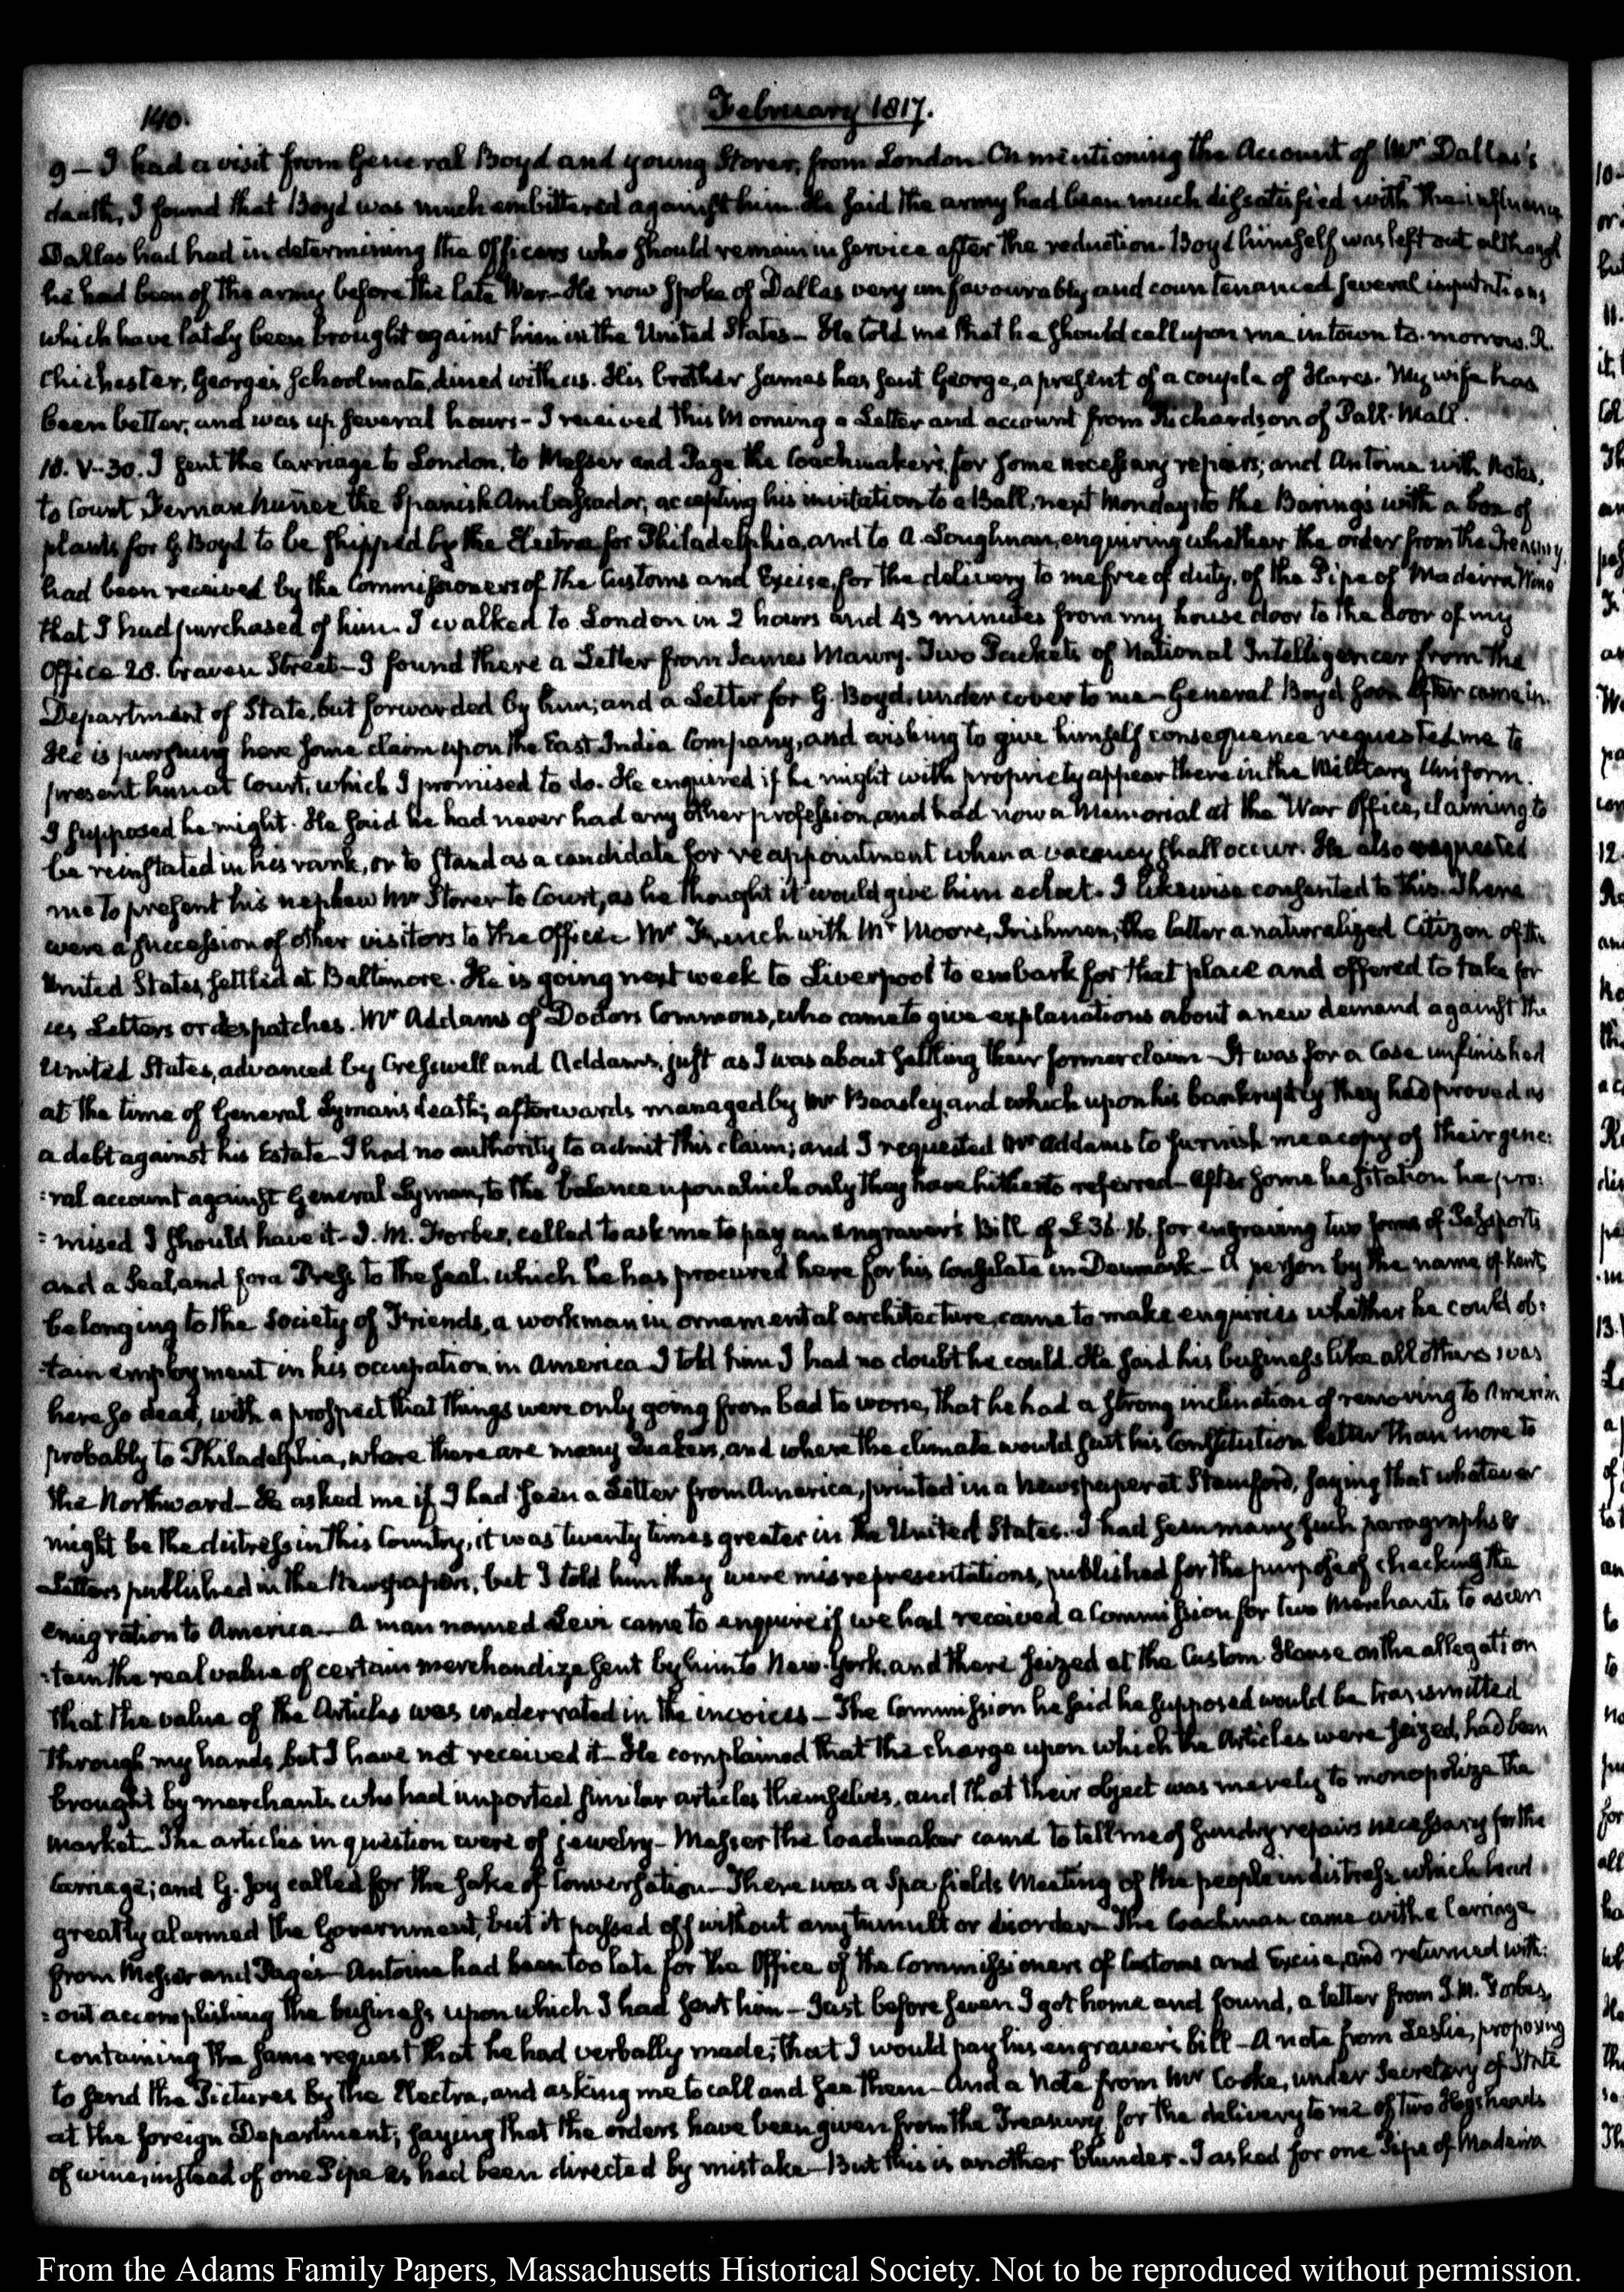 140.
February 1817.
9 — I had a visit from General Boyd and young Storer, from London. On mentioning the Account of Mr Dallas's
death, I found that Boyd was much embittered against him. He said the army had been much dissatisfied with the influence
Dallas had had in determining the Officers who should remain in service after the reduction. Boyd himself was left out although
he had been of the army before the late War — He now spoke of Dallas very unfavourably and countenanced several imputations
which have lately been brought against him in the United States — He told me that he should call upon me in town to-morrow. R.
Chichester, George's schoolmate, dined with us. His brother James has sent George, a present of a couple of Hares. My wife has
been better, and was up several hours — I received this Morning a Letter and account from Richardson of Pall-Mall.
10. V-30. I sent the Carriage to London, to Messer and Page the Coachmaker's, for some necessary repairs; and Antoine with Notes,
to Count Fernan Nuñez the Spanish Ambassador, accepting his invitation to a Ball, next Monday, to the Barings with a box of
plants for G. Boyd to be shipped by the Electra, for Philadelphia, and to A. Loughnan, enquiring whether the order from the Treasury,
had been received by the Commissioners of the Customs and Excise, for the delivery to me free of duty, of the Pipe of Madeira Wine
that I had purchased of him. I walked to London in 2 hours and 43 minutes from my house door to the door of my
Office 28. Craven Street — I found there a Letter from James Maury. Two Packets of National Intelligencer from the
Department of State, but forwarded by him; and a Letter for G. Boyd, under cover to me — General Boyd soon after came in.
He is pursuing here some claim upon the East India Company, and wishing to give himself consequence requested me to
present him at Court, which I promised to do. He enquired if he might with propriety appear there in the Military Uniform.
I supposed he might. He said he had never had any other profession, and had now a Memorial at the War Office, claiming to
be reinstated in his rank, or to stand as a candidate for reappointment when a vacancy shall occur. He also requested
me to present his nephew Mr Storer to Court, as he thought it would give him eclat. I likewise consented to this. There
were a succession of other visitors to the Office. Mr French with Mr Moore, Irishmen, the latter a naturalized Citizen of the
United States, settled at Baltimore. He is going next week to Liverpool to embark for that place and offered to take for
us Letters or despatches. Mr Addams of Doctors Commons, who came to give explanations about a new demand against the
United States, advanced by Creswell and Addams, just as I was about settling their former claim — It was for a Case unfinished
at the time of General Lyman's death; afterwards managed by Mr Beasley, and which upon his bankruptcy they had proved as
a debt against his Estate — I had no authority to admit this claim; and I requested Mr Addams to furnish me a copy of their gene:
:ral account against General Lyman, to the balance upon which only they have hitherto referred — After some hesitation he pro:
:mised I should have it — J. M. Forbes, called to ask me to pay an engraver's Bill of £36.16. for engraving two forms of Passports
and a Seal, and for a Press to the seal, which he has procured here for his Consulate in Denmark — A person by the name of Kent,
belonging to the Society of Friends, a workman in ornamental architecture, came to make enquiries whether he could ob:
:tain employment in his occupation in America — I told him I had no doubt he could. He said his business like all others was
here so dead, with a prospect that things were only going from bad to worse, that he had a strong inclination of removing to America
probably to Philadelphia, where there are many Quakers, and where the climate would suit his Constitution better than more to
the Northward — He asked me if I had seen a Letter from America, printed in a Newspaper at Stamford, saying that whatever
might be the distress in this Country, it was twenty times greater in the United States. I had seen many such paragraphs &
Letters published in the Newspapers, but I told him they were misrepresentations, published for the purpose of checking the
emigration to America — A man named Levi came to enquire if we had received a Commission for two Merchants to ascer
:tain the real value of certain merchandize sent by him to New-York, and there seized at the Custom House on the allegation
that the value of the Articles was underrated in the invoices — The Commission he said he supposed would be transmitted
through my hands, but I have not received it — He complained that the charge upon which the Articles were seized, had been
brought by merchants who had imported similar articles themselves, and that their object was merely to monopolize the
market — The articles in question were of jewelry — Messer the Coachmaker came to tell me of sundry repairs necessary for the
Carriage; and G. Joy called for the sake of Conversation — There was a Spa fields Meeting of the people in distress, which had
greatly alarmed the Government, but it passed off without any tumult or disorder — The Coachman came with a Carriage
from Messer and Page's — Antoine had been too late for the Office of the Commissioners of Customs and Excise, and returned with:
:out accomplishing the business upon which I had sent him — Just before seven I got home and found, a letter from J. M. Forbes,
containing the same request that he had verbally made; that I would pay his engraver's bill — A note from Leslie, proposing
to send the Pictures by the Electra, and asking me to call and see them — And a Note from Mr Cooke, under Secretary of State
at the foreign Department; saying that the orders have been given from the Treasury for the delivery to me of two Hogsheads
of wine, instead of one Pipe as had been directed by mistake — But this is another blunder. I asked for one Pipe of Madeira
From the Adams Family Papers, Massachusetts Historical Society. Not to be reproduced without permission.